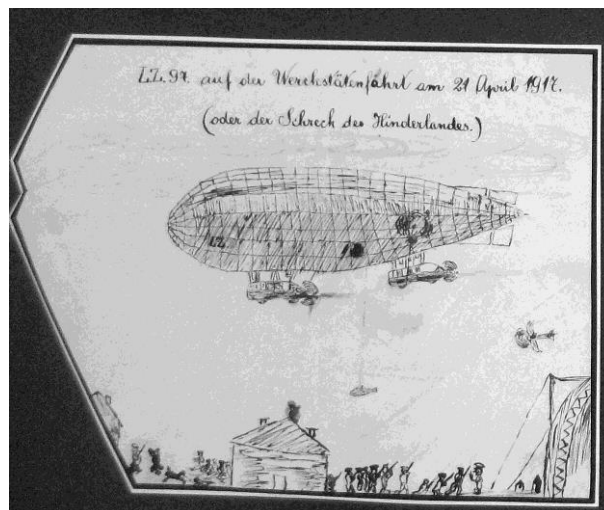 LZ. 97. auf der Werckstätenfährt am 21 April 1917.
(oder der Schreck des Hinderlandes.)
LZ